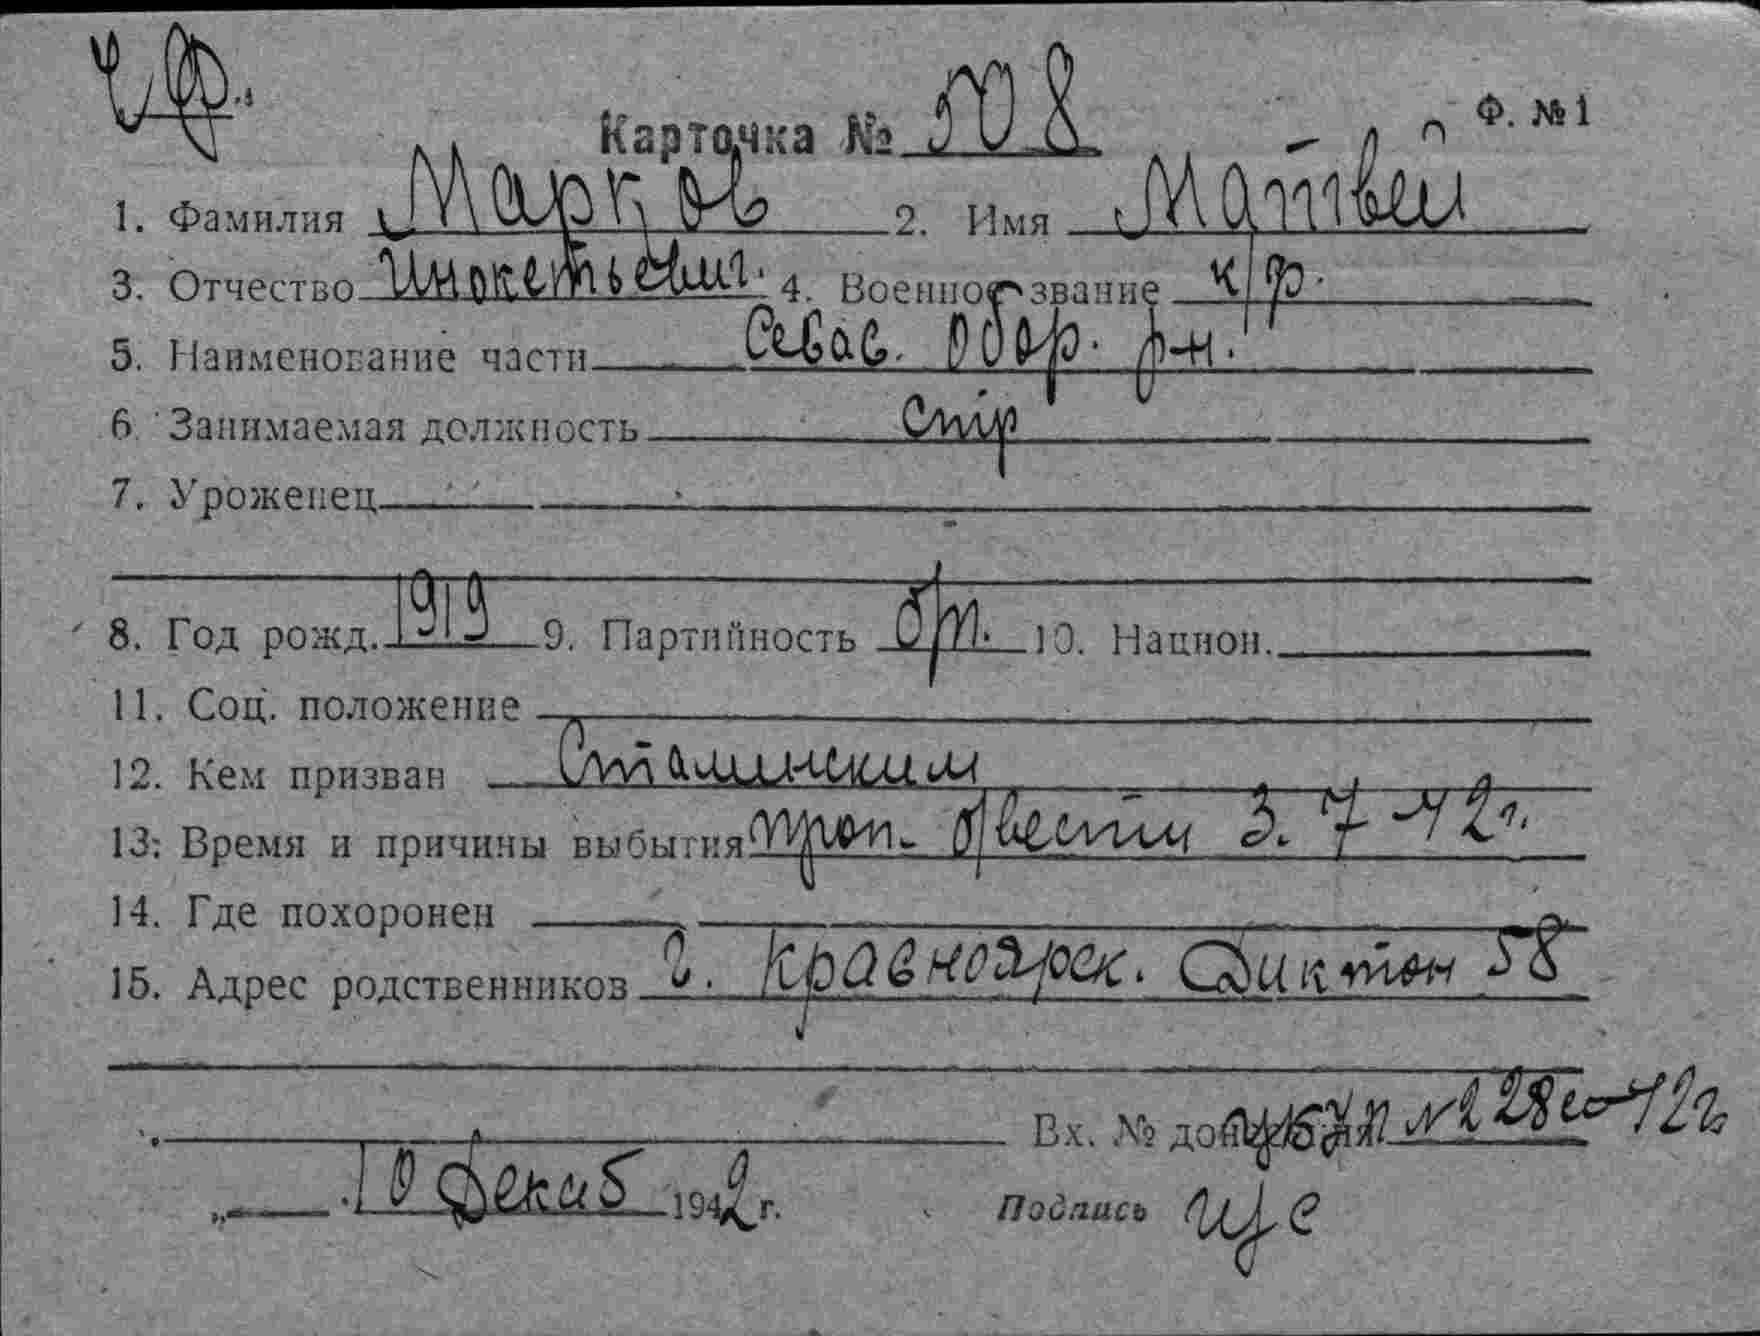 ЧФ.
Карточка № 508 Ф. № 1
1. Фамилия Марков 2. Имя Матвей
3. Отчество Инокетьевич. 4. Военное звание к/ф.
5. Наименование части Севас. обор. р-н.
6. Занимаемая должность стр
7. Уроженец
8. Год рожд. 1919 9. Партийность б/п. 10. Национ.
11. Соц. положение
12. Кем призван Сталинским
13. Время и причины выбытия проп. б/вести 3. 7 42 г.
14. Где похоронен
15. Адрес родственников г. Красноярск. Диктон 58
Вх. № донесения № 228 42 г.
„ 10 Декаб 1942 г. Подпись